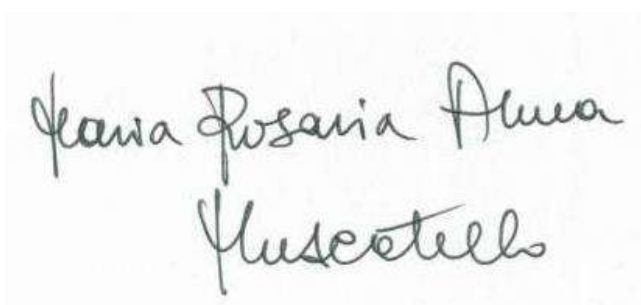 Maria Rosaria Anna
Muscatello